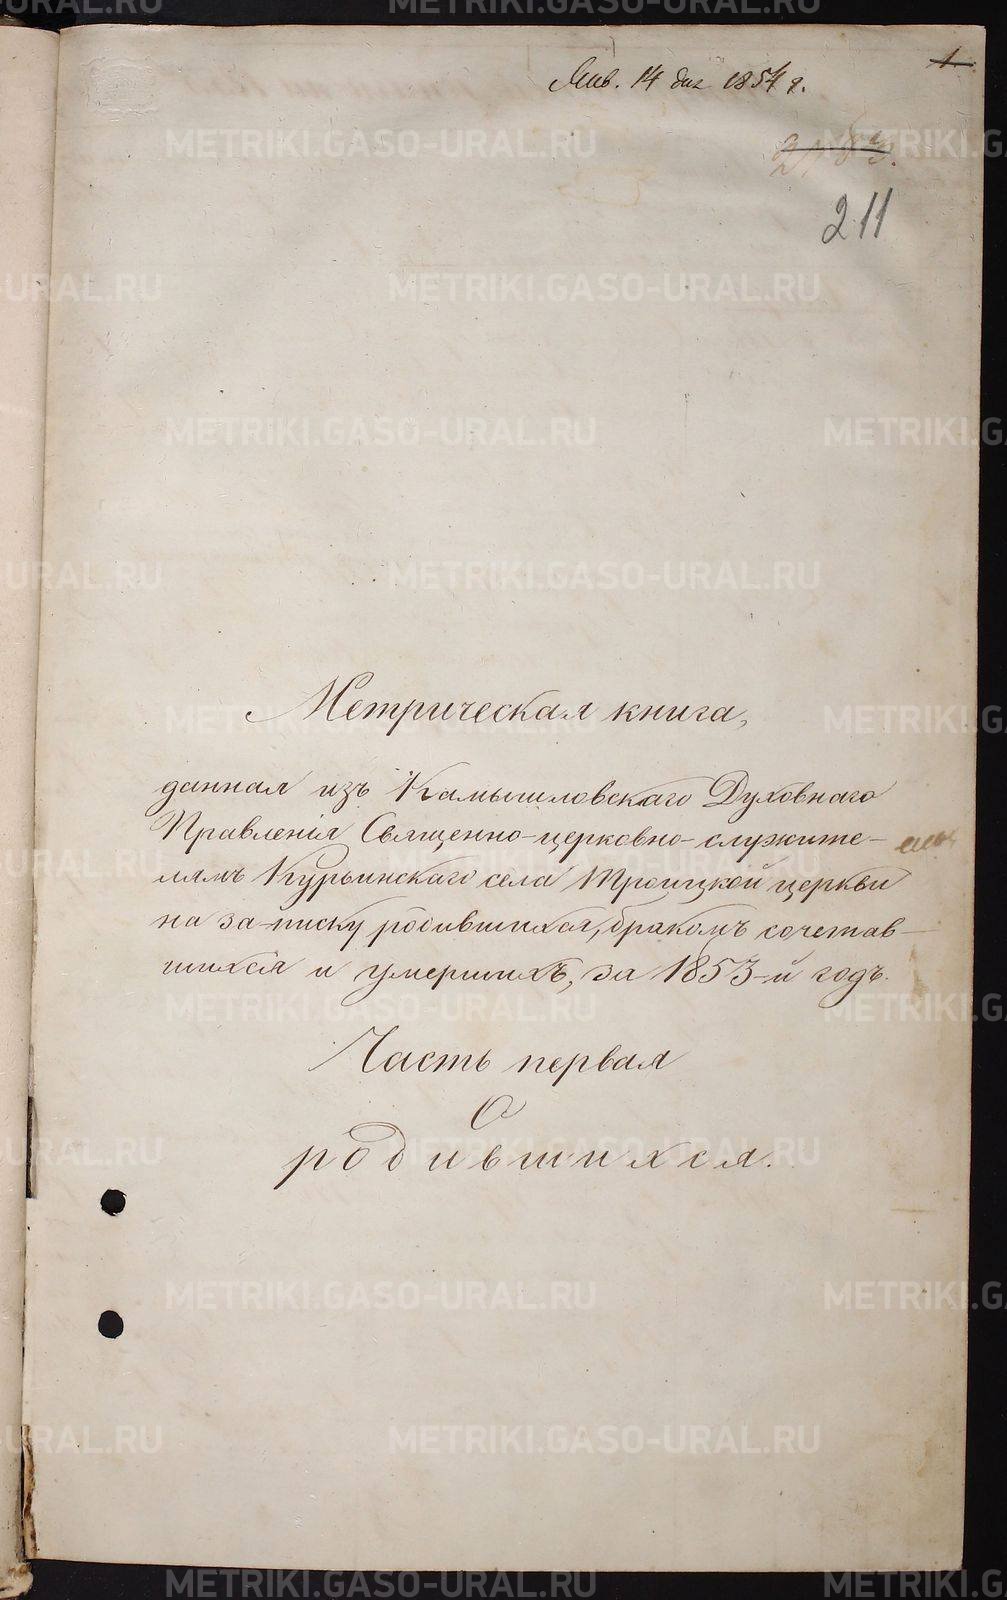 Янв. 14 дня 1854 г.
1
211
Метрическая книга,
данная изъ Камышловскаго Духовнаго
Правленія Священно-церковно-служите-
лямъ Курьинскаго села Троицкой церкви
на записку родившихся, бракомъ сочетав-
шихся и умершихъ, за 1853-й годъ.
Часть первая
О
родившихся.
METRIKI.GASO-URAL.RU